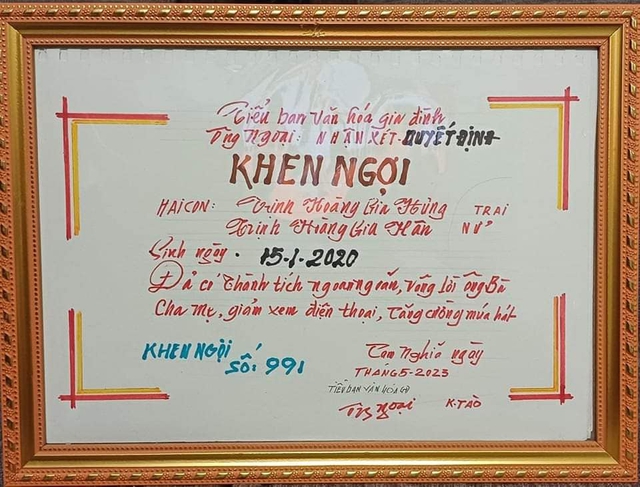 Tiểu ban văn hóa gia đình
Ông Ngoại: NHẬN XÉT - QUYẾT ĐỊNH
KHEN NGỢI
HAI CON: Trịnh Hoàng Gia Hưng TRAI
Trịnh Hoàng Gia Hân NỮ
Sinh ngày · 15-1-2020
Đã có Thành tích ngoan ngoãn, vâng lời Ông Bà
Cha mẹ, giảm xem điện thoại, Tăng cường múa hát
KHEN NGỢI
SỐ: 991
Tam Nghĩa ngày
THÁNG 5-2023
TIỂU BAN VĂN HÓA GĐ
Ông Ngoại K.TÀO